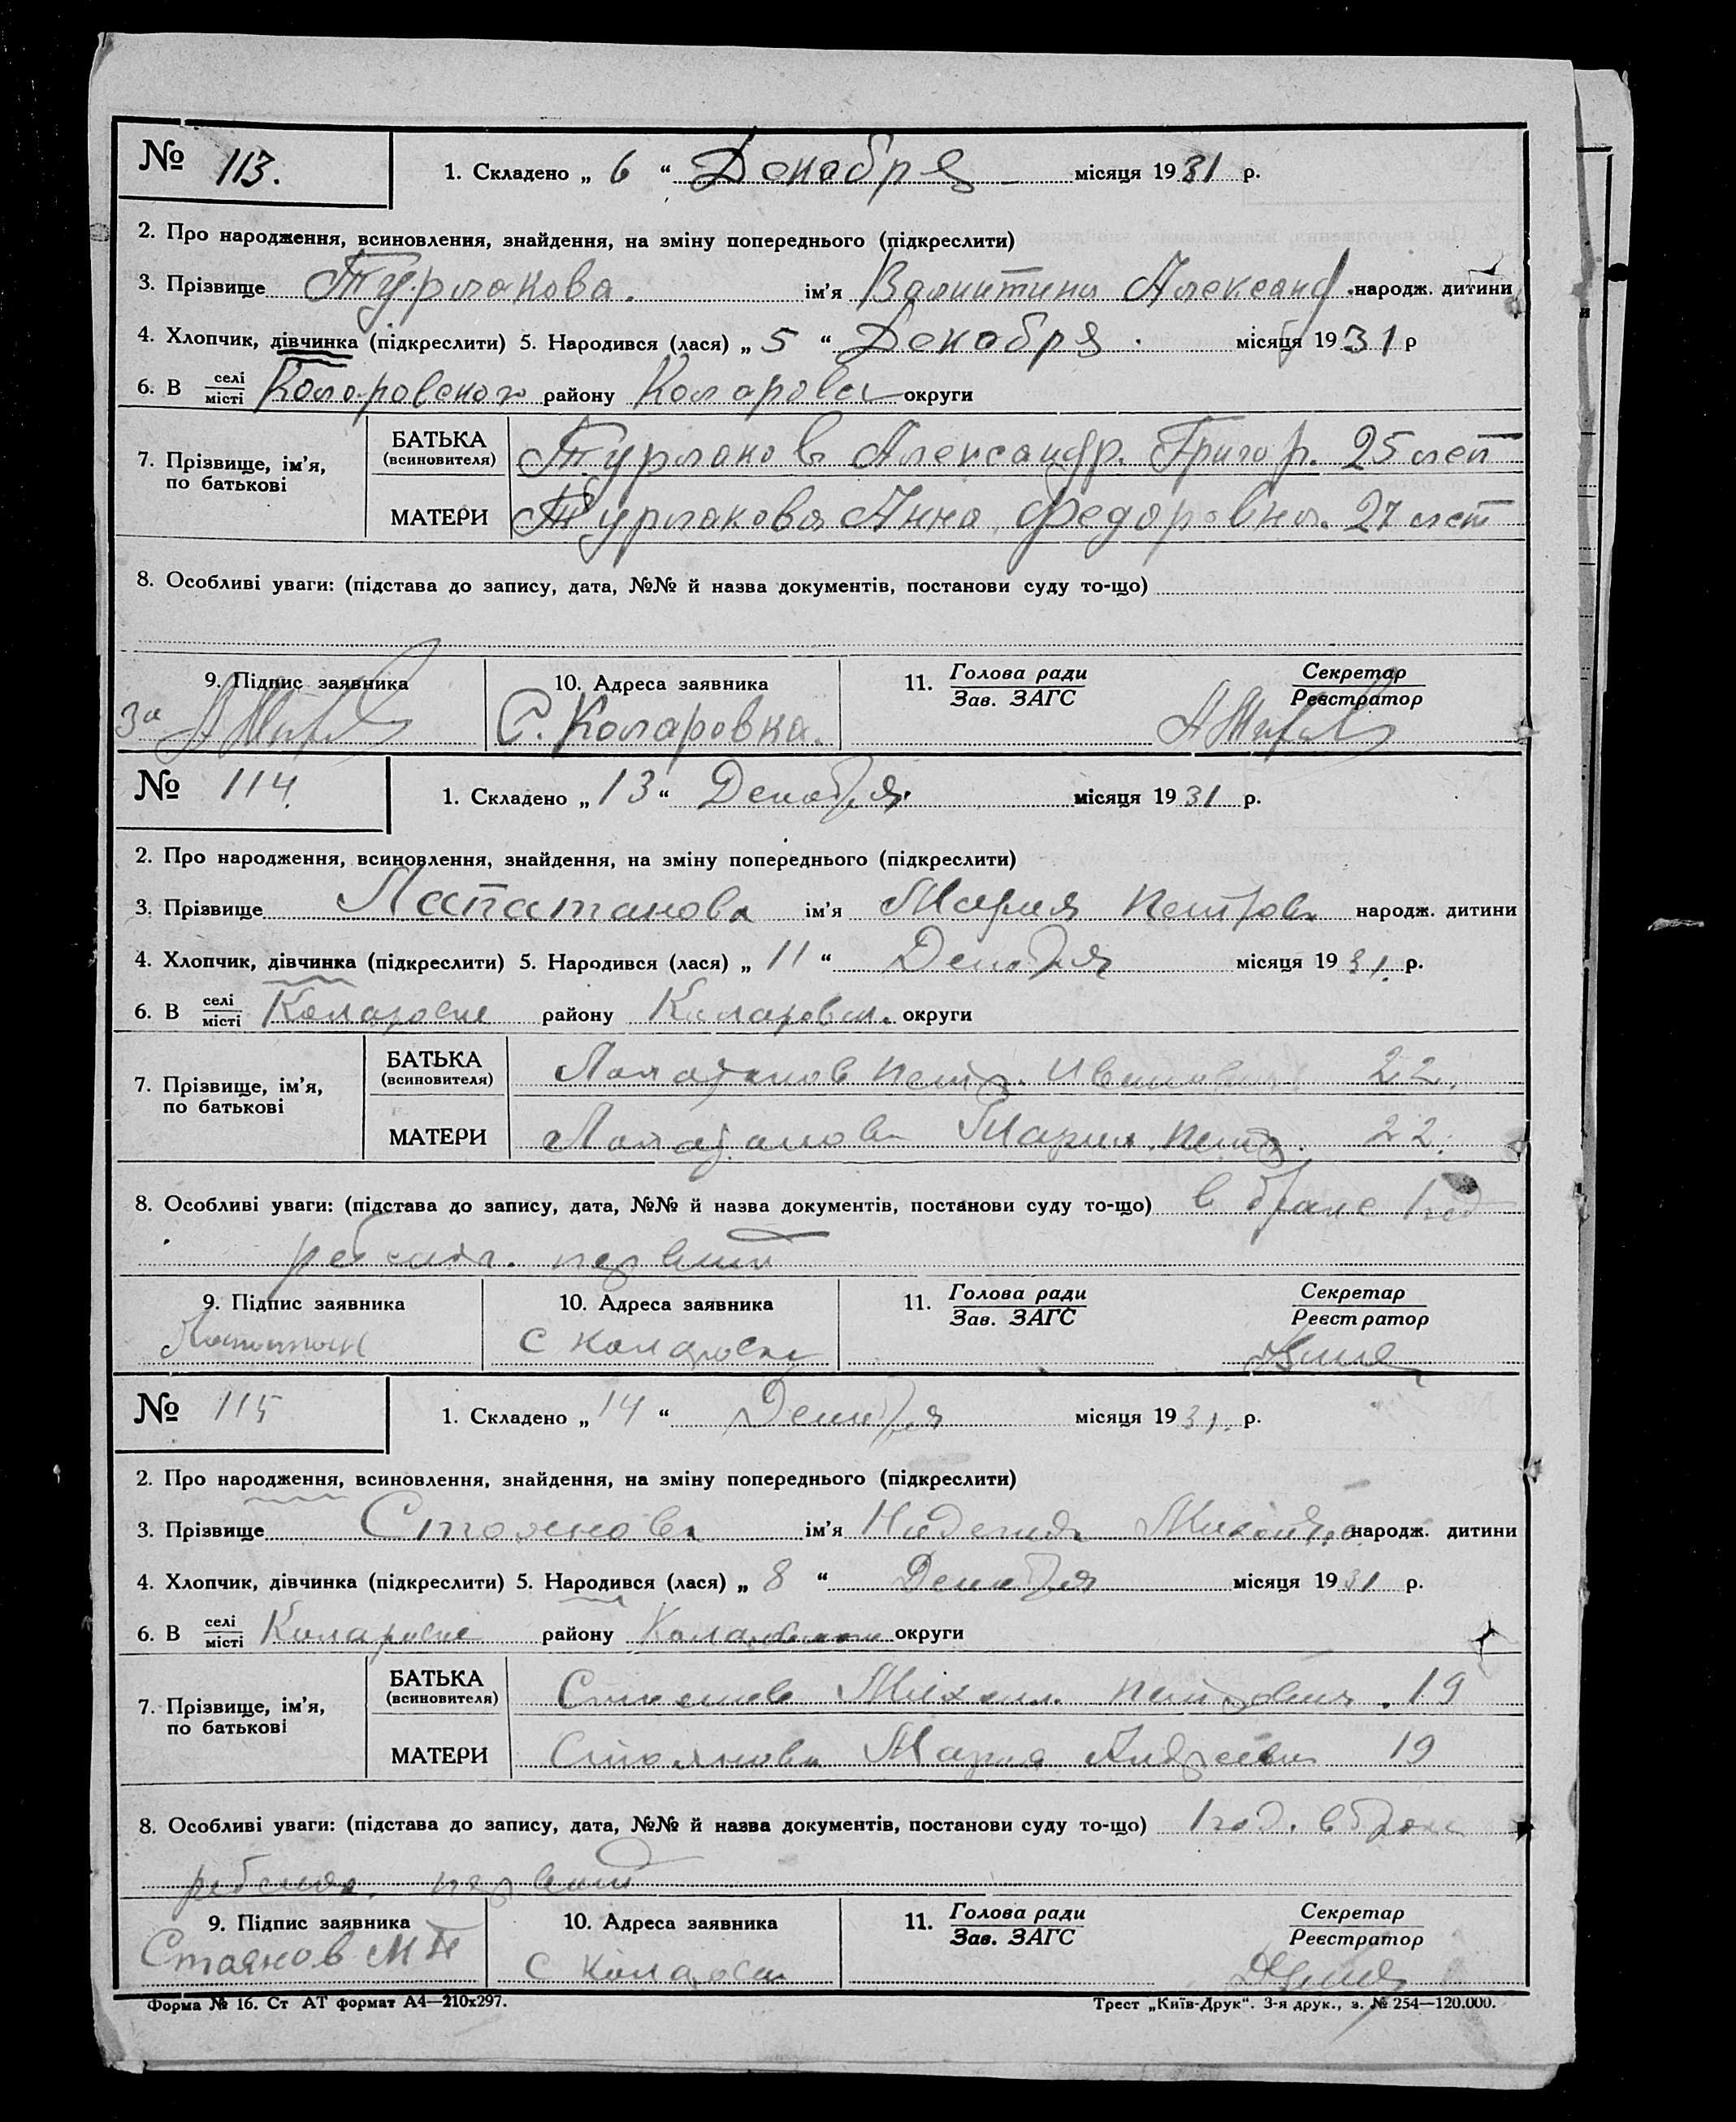 № 113. 1. Складено „ 6 “ Декабря місяця 1931 р.
2. Про народження, всиновлення, знайдення, на зміну попереднього (підкреслити)
3. Прізвище Турлакова. ім’я Валинтина Александ. народж. дитини
4. Хлопчик, дівчинка (підкреслити) 5. Народився (лася) „ 5 “ Декабря місяця 1931 р
6. В селі/місті Коларовского району Коларовка округи
7. Прізвище, ім’я, по батькові
БАТЬКА (всиновителя) Турлаков Александр. Григор. 25 лет
МАТЕРИ Турлакова Анна Федоровна. 27 лет
8. Особливі уваги: (підстава до запису, дата, №№ й назва документів, постанови суду то-що)
9. Підпис заявника 10. Адреса заявника 11. Голова ради/Зав. ЗАГС Секретар/Реєстратор
За С. Коларовка.
№ 114 1. Складено „ 13 “ Декабря місяця 1931 р.
2. Про народження, всиновлення, знайдення, на зміну попереднього (підкреслити)
3. Прізвище ім’я Мария Петров народж. дитини
4. Хлопчик, дівчинка (підкреслити) 5. Народився (лася) „ 11 “ Декабря місяця 1931. р.
6. В селі/місті Коларовке району Коларовск. округи
7. Прізвище, ім’я, по батькові
БАТЬКА (всиновителя) Петр. Иванович 22.
МАТЕРИ Мария Петр. 22.
8. Особливі уваги: (підстава до запису, дата, №№ й назва документів, постанови суду то-що) в браке 1 год
ребенок. первый
9. Підпис заявника 10. Адреса заявника 11. Голова ради/Зав. ЗАГС Секретар/Реєстратор
с Коларовка
№ 115 1. Складено „ 14 “ Декабря місяця 1931. р.
2. Про народження, всиновлення, знайдення, на зміну попереднього (підкреслити)
3. Прізвище Стоянова ім’я Надежда Михайл. народж. дитини
4. Хлопчик, дівчинка (підкреслити) 5. Народився (лася) „ 8 “ Декабря місяця 1931 р.
6. В селі/місті Коларовке району округи
7. Прізвище, ім’я, по батькові
БАТЬКА (всиновителя) Стоянов Михаил Петрович. 19
МАТЕРИ Стоянова Мария Андреевн 19
8. Особливі уваги: (підстава до запису, дата, №№ й назва документів, постанови суду то-що) 1 год. в браке
ребенок. первый
9. Підпис заявника 10. Адреса заявника 11. Голова ради/Зав. ЗАГС Секретар/Реєстратор
Стаянов М П с Коларовка
Форма № 16. Ст АТ формат А4—210х297. Трест „Київ-Друк“. 3-я друк., з. № 254—120.000.